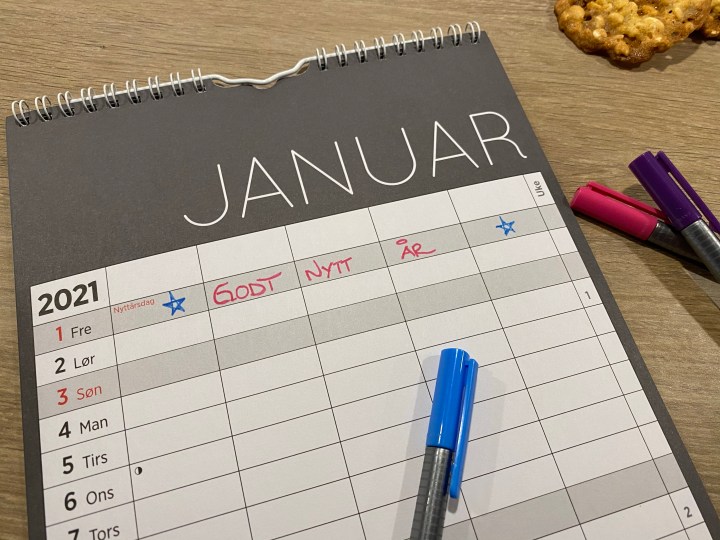 JANUAR
Uke
2021
1 Fre Nyttårsdag GODT NYTT ÅR
2 Lør
3 Søn
4 Man 1
5 Tirs
6 Ons
7 Tors
2